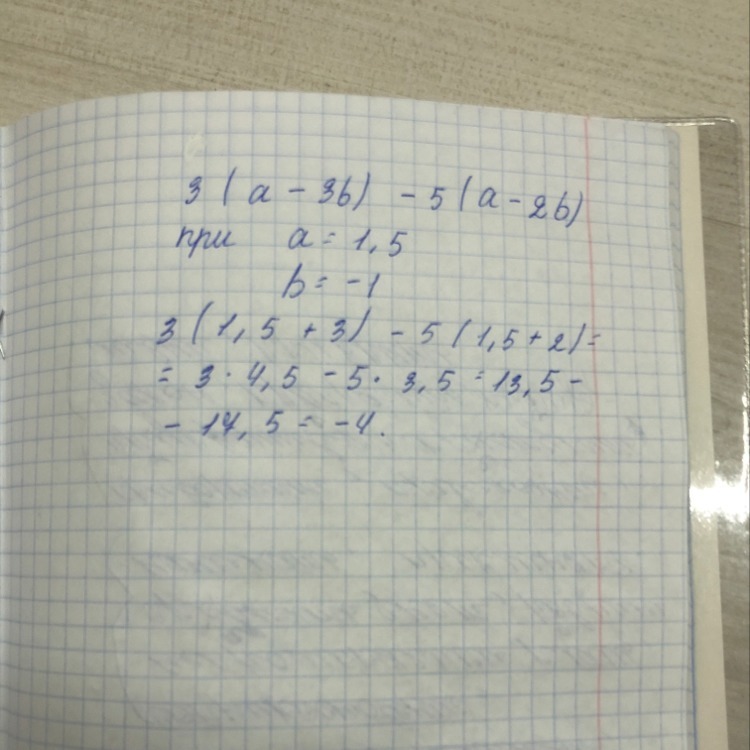 3(a - 3b) - 5(a - 2b)
при a = 1,5
b = -1
3(1,5 + 3) - 5(1,5 + 2) =
= 3 · 4,5 - 5 · 3,5 = 13,5 -
- 17,5 = -4.